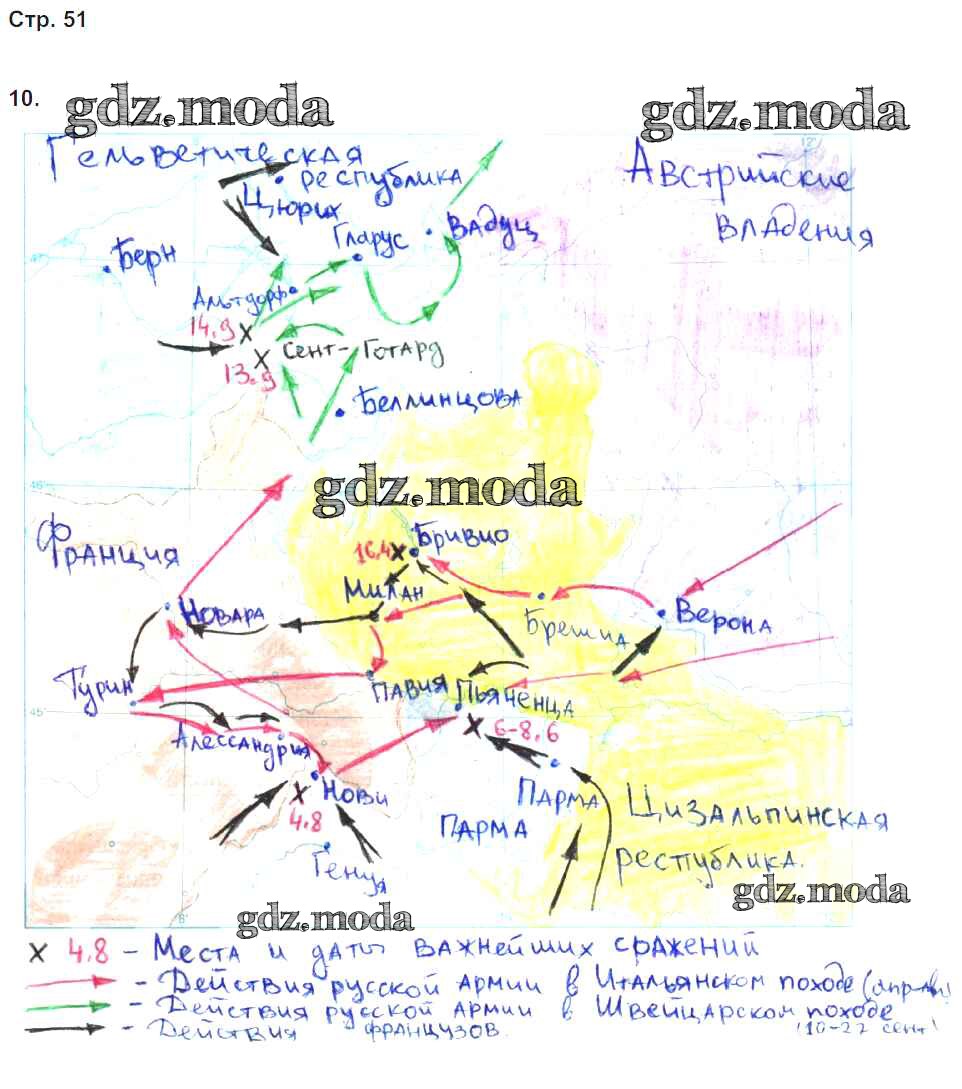 Стр. 51
10.
gdz.moda
gdz.moda
Гельветическая
республика
Австрийские
владения
12°
Цюрих
Гларус
Вадуц
Берн
Альтдорф
14.9
Сент-Готард
13.9
Беллинцова
46°
gdz.moda
Франция
Бривио
16.4
Милан
Новара
Брешиа
Верона
Турин
Павия
Пьяченца
45°
6-8.6
Алессандрия
Нови
4.8
Парма
Парма
Цизальпинская
республика.
Генуя
gdz.moda
gdz.moda
8°
х 4.8 - Места и даты важнейших сражений
- Действия русской армии в Итальянском походе
- Действия русской армии в Швейцарском походе
- Действия французов.
10-27 сент